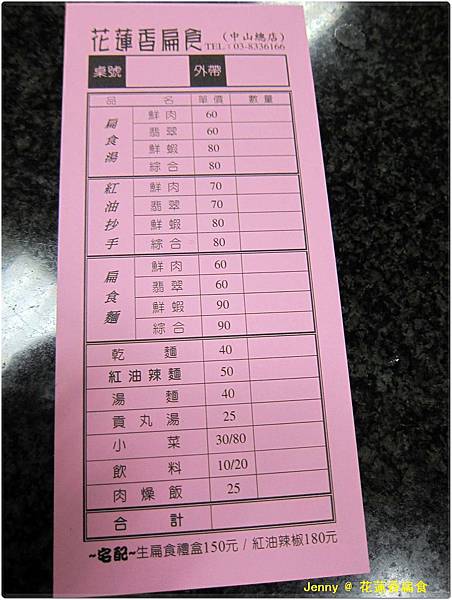 花蓮香扁食 (中山總店)
TEL:03-8336166
桌號 外帶
品名 單價 數量
扁食湯
鮮肉 60
翡翠 60
鮮蝦 80
綜合 80
紅油抄手
鮮肉 70
翡翠 70
鮮蝦 80
綜合 80
扁食麵
鮮肉 60
翡翠 60
鮮蝦 90
綜合 90
乾麵 40
紅油辣麵 50
湯麵 40
貢丸湯 25
小菜 30/80
飲料 10/20
肉燥飯 25
合計
~宅配~生扁食禮盒150元 / 紅油辣椒180元
Jenny @ 花蓮香扁食